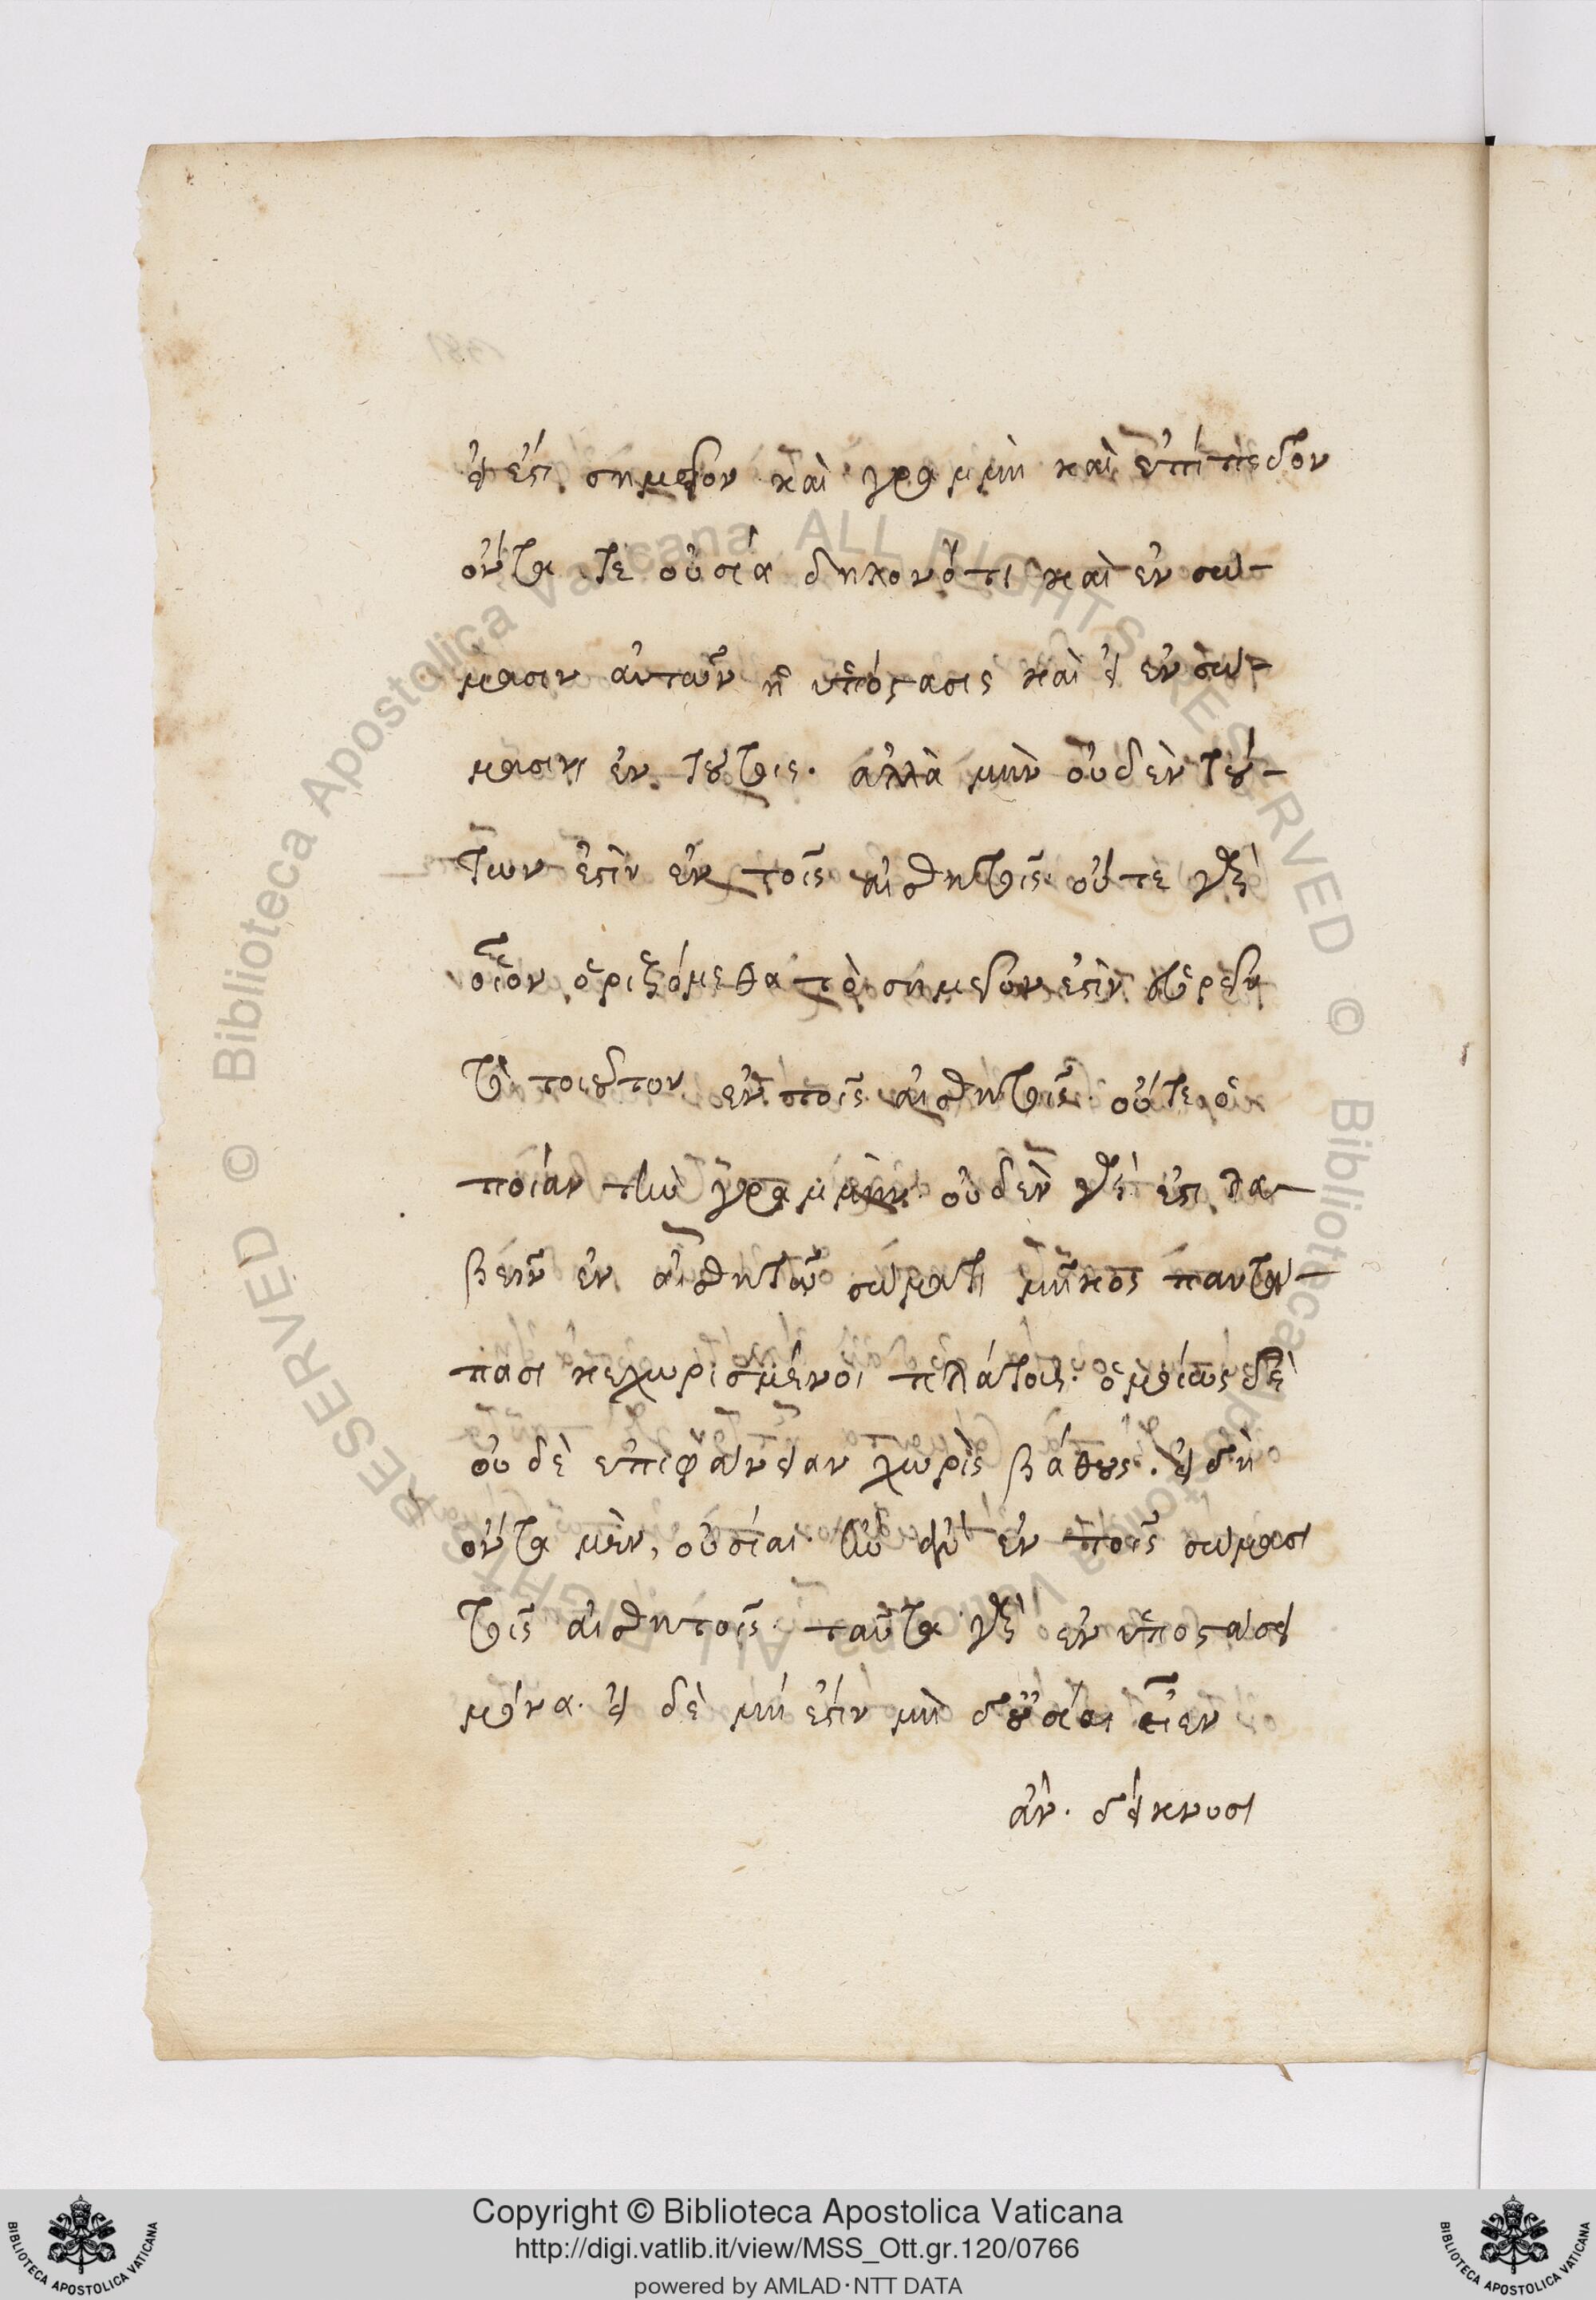 εἰ ἔστι σημεῖον καὶ γραμμὴ καὶ ἐπίπεδον
ὄντα τε οὐσία δηλονότι καὶ ἐν σώ-
μασιν αὐτῶν ἡ ὑπόστασις καὶ εἰ ἐν σώ-
μασιν ἐν τούτοις. ἀλλὰ μὴν οὐδὲν τού-
των ἐστὶν ἐν τοῖς αἰσθητοῖς οὔτε γὰρ
οἷον ὁριζόμεθα τὸ σημεῖον ἐστὶν εὑρεῖν
τι τοιοῦτον ἐν τοῖς αἰσθητοῖς. οὔτε ὁ
ποίαν τὴν γραμμὴν. οὐδὲν γάρ ἐστι λα-
βεῖν ἐν αἰσθητῷ σώματι μῆκος παντά-
πασι κεχωρισμένον πλάτους. ὁμοίως δὲ
οὐδὲ ἐπιφάνειαν χωρὶς βάθους. εἰ δὴ
ὄντα μὲν, οὐσίαι. ἐν τοῖς σώμασι
τοῖς αἰσθητοῖς. ταῦτα γὰρ ἐν ὑποστάσει
μόνα. εἰ δὲ μή ἐστιν μὴ δ' οὐσίαι εἶεν
ἄν. δείκνυσι
Copyright © Biblioteca Apostolica Vaticana
http://digi.vatlib.it/view/MSS_Ott.gr.120/0766
powered by AMLAD·NTT DATA